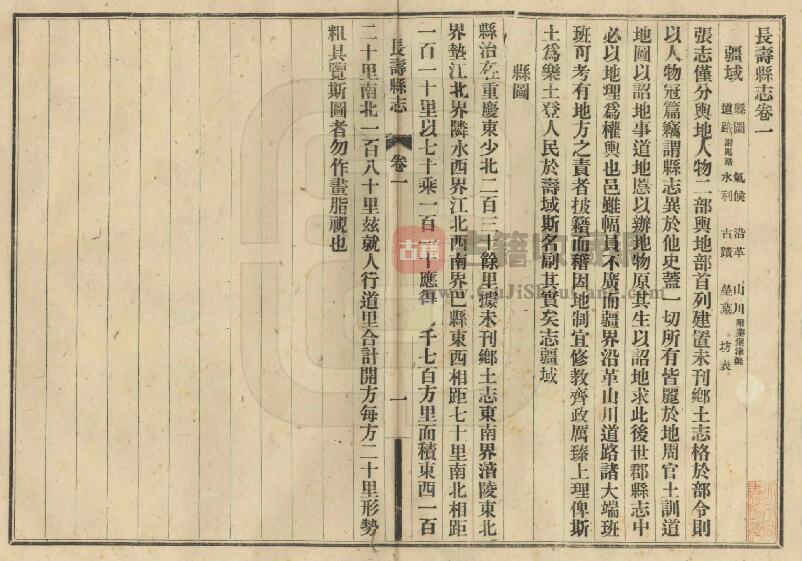 長壽縣志卷一
疆域 縣圖 氣候 沿革 山川附寨堡津梁
道路附馬路 水利 古蹟 塋墓 坊表
張志僅分輿地人物二部輿地部首列建置未刊鄉土志格於部令則
以人物冠篇竊謂縣志異於他史蓋一切所有皆麗於地周官土訓道
地圖以詔地事道地慝以辦地物原其生以詔地求此後世郡縣志中
必以地理爲權輿也邑雖幅員不廣而疆界沿革山川道路諸大端班
班可考有地方之責者披籍而稽因地制宜修教齊政厲臻上理俾斯
土爲樂土登人民於壽域斯名副其實矣志疆域
縣圖
縣治在重慶東少北二百三十餘里據未刊鄉土志東南界涪陵東北
界墊江北界隣水西界江北西南界巴縣東西相距七十里南北相距
一百一十里以七十乘一百一十應得 千七百方里面積東西一百
長壽縣志 卷一 一
二十里南北一百八十里玆就人行道里合計開方每方二十里形勢
粗具覽斯圖者勿作畫脂視也
古籍
www.GuJiShuCang.com